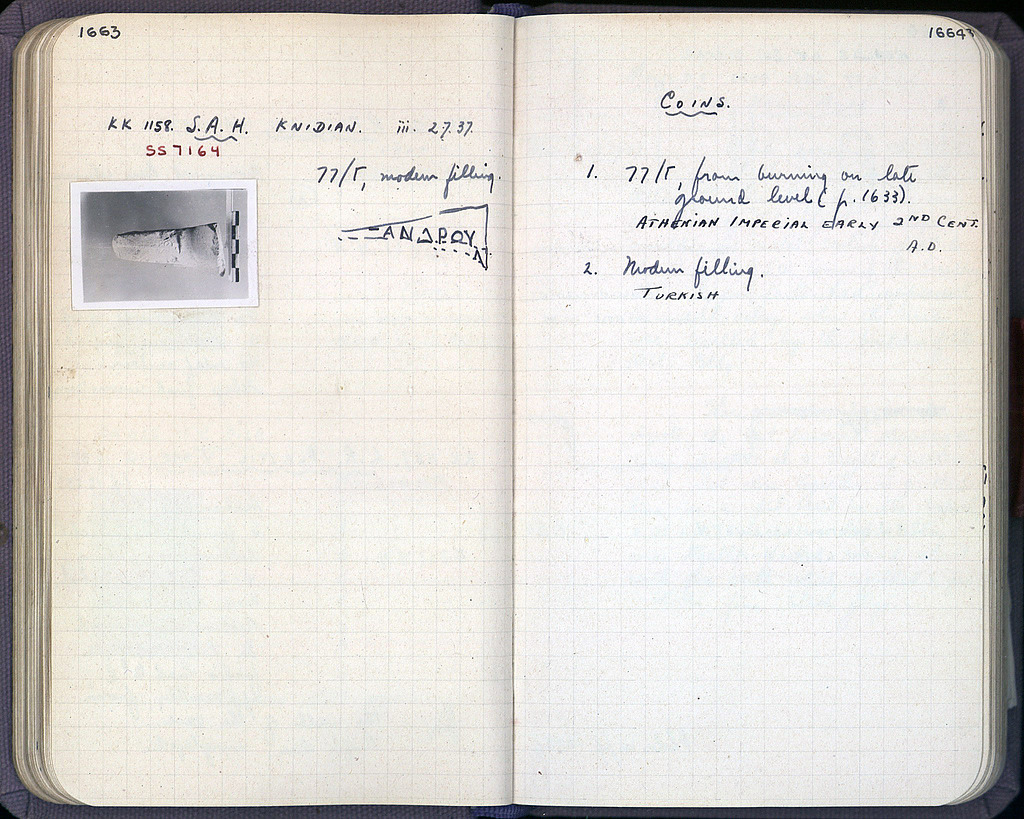 1663
KK 1158. S.A.H. KNIDIAN. iii. 27.37.
SS 7164
77/Γ, modern filling.
ΑΝΔΡΟΥ
1664
COINS.
1. 77/Γ, from burning on late
ground level (p. 1633).
ATHENIAN IMPERIAL EARLY 2ND CENT.
A.D.
2. Modern filling.
TURKISH